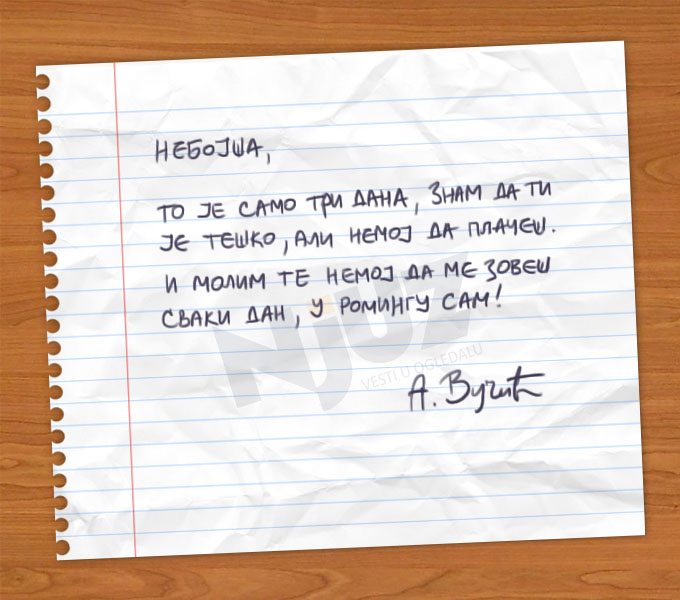 НЕБОЈША,
ТО ЈЕ САМО ТРИ ДАНА, ЗНАМ ДА ТИ
ЈЕ ТЕШКО, АЛИ НЕМОЈ ДА ПЛАЧЕШ.
И МОЛИМ ТЕ НЕМОЈ ДА МЕ ЗОВЕШ
СВАКИ ДАН, У РОМИНГУ САМ!
NJUZ
VESTI U OGLEDALU
А. Вучић